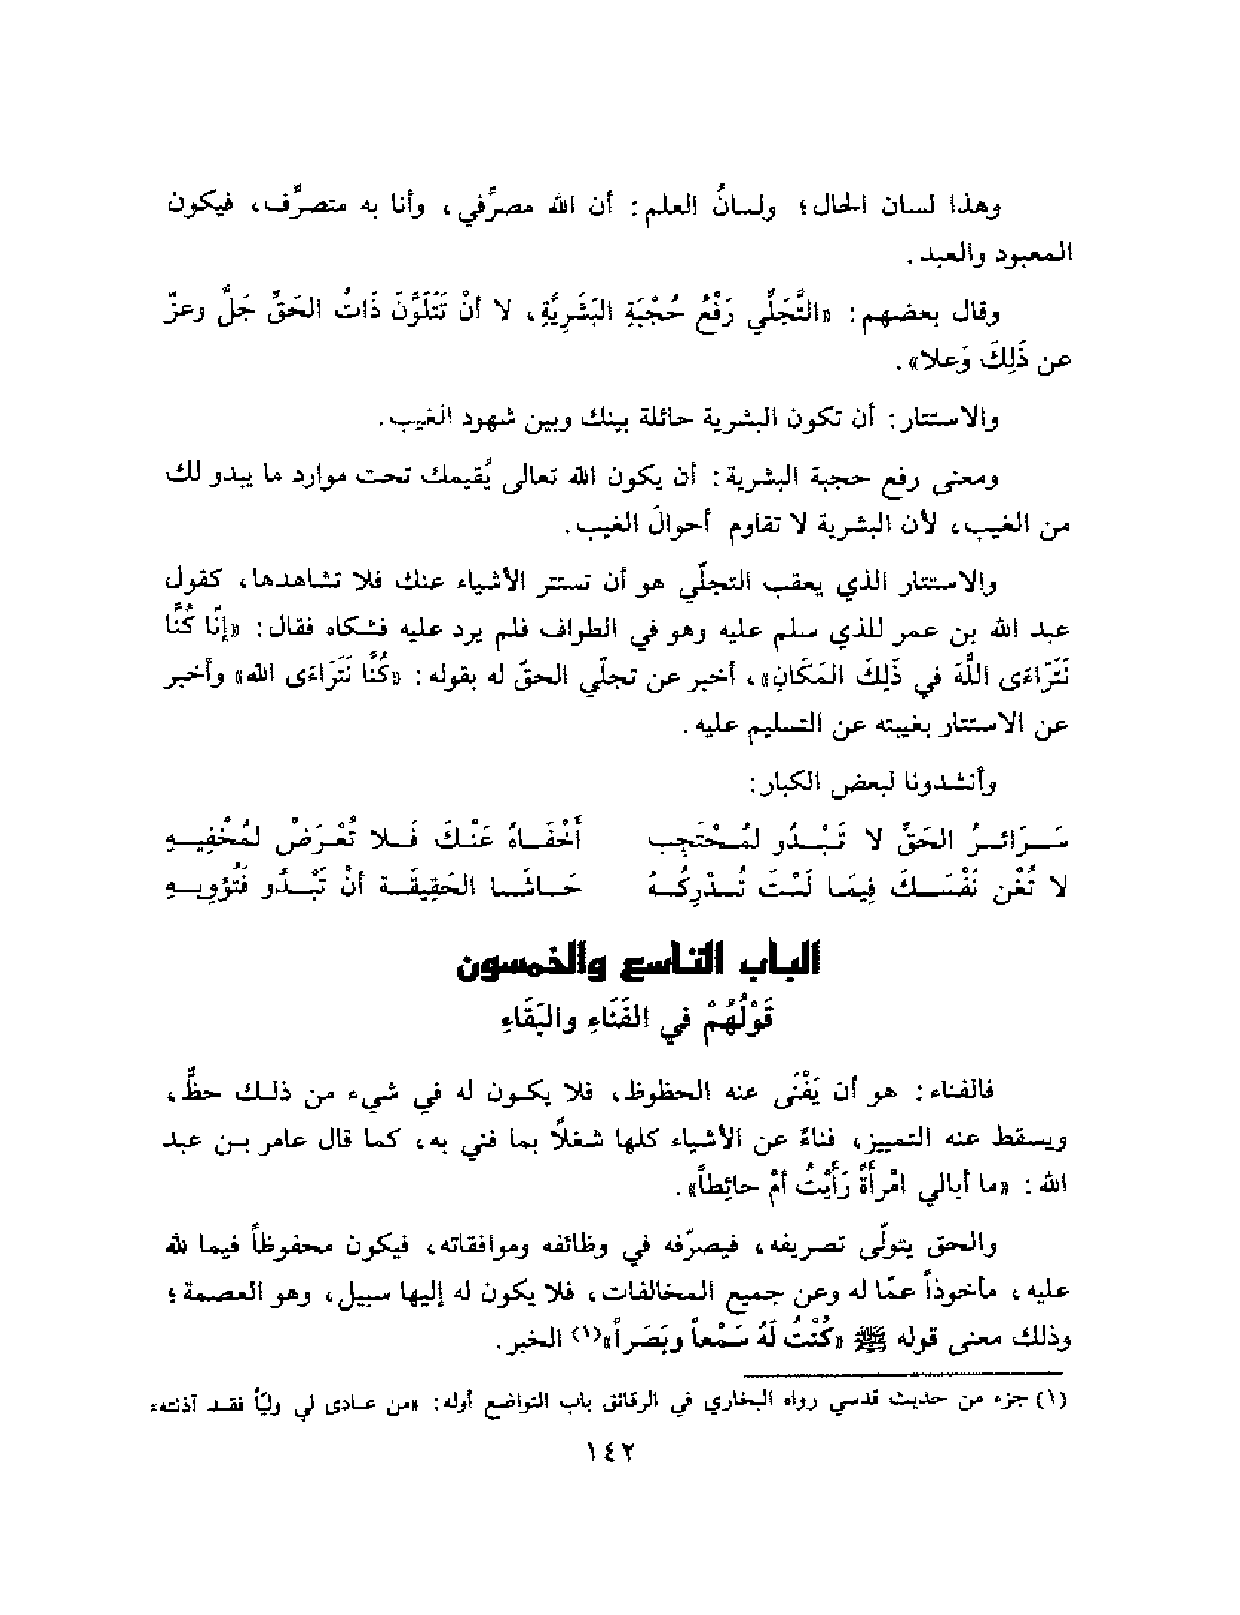 وهذا لسان الحال؛ ولسانُ العلم: أن الله مصرِّفي، وأنا به متصرَّف، فيكون
المعبود والعبد.
وقال بعضهم: «التَّجَلِّي رَفْعُ حُجْبَةِ البَشَرِيَّةِ، لا أنْ تَتَلَوَّنَ ذَاتُ الحَقِّ جَلَّ وعزّ
عن ذَلِكَ وَعلا».
والاستتار: أن تكون البشرية حائلة بينك وبين شهود الغيب.
ومعنى رفع حجبة البشرية: أن يكون الله تعالى يُقيمك تحت موارد ما يبدو لك
من الغيب، لأن البشرية لا تقاوم أحوالَ الغيب.
والاستتار الذي يعقب التجلّي هو أن تستتر الأشياء عنك فلا تشاهدها، كقول
عبد الله بن عمر للذي سلم عليه وهو في الطواف فلم يرد عليه فشكاه فقال: «إنَّا كُنَّا
نَتَرَاءَى اللَّهَ في ذَلِكَ المَكَانِ»، أخبر عن تجلّي الحقّ له بقوله: «كُنَّا نَتَرَاءَى الله» وأخبر
عن الاستتار بغيبته عن التسليم عليه.
وأنشدونا لبعض الكبار:
سَرَائرُ الحَقِّ لا تَبْدُو لمُحْتَجِب أخْفَاهُ عَنْكَ فَلا تُعْرَضْ لمُخْفِيهِ
لا تُعْنِ نَفْسَكَ فِيمَا لَسْتَ تُدْرِكُهُ حَاشَا الحَقِيقَة أنْ تَبْدُو فَتُؤوِيهِ
الباب التاسع والخمسون
قَوْلُهُمْ في الفَنَاءِ والبَقَاءِ
فالفناء: هو أن يَفْنَى عنه الحظوظ، فلا يكون له في شيء من ذلك حظٌّ،
ويسقط عنه التمييز، فناءً عن الأشياء كلها شغلاً بما فني به، كما قال عامر بن عبد
الله: «ما أبالي امْرأةً رَأيْتُ أمْ حائِطاً».
والحق يتولّى تصريفه، فيصرّفه في وظائفه وموافقاته، فيكون محفوظاً فيما لله
عليه، مأخوذاً عمّا له وعن جميع المخالفات، فلا يكون له إليها سبيل، وهو العصمة؛
وذلك معنى قوله ﷺ «كُنْتُ لَهُ سَمْعاً وبَصَراً»(١) الخبر.
(١) جزء من حديث قدسي رواه البخاري في الرقائق باب التواضع أوله: «من عادى لي وليّاً فقد آذنته»
١٤٢